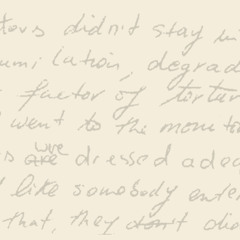 tors didn't stay in
umiliation, degrad
factor of tortur
went to the moneto
s were dressed adeq
like somebody enter
that, they don't did